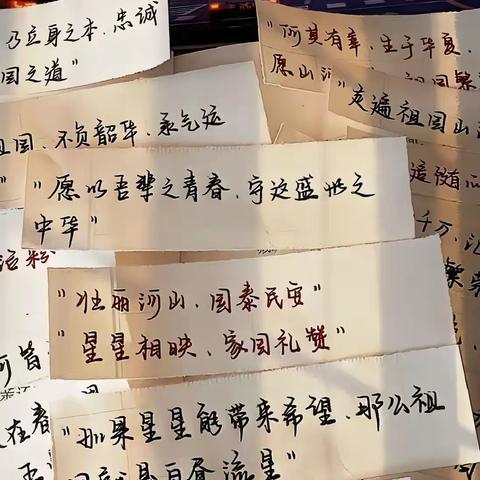 乃立身之本、忠诚
国之道"
"何其有幸，生于华夏、
愿山河
"走遍祖国山
国、不负韶华、承气运
"愿以吾辈之青春、守这盛世之
中华"
千万、汇
"壮丽河山、国泰民安"
"星星相映、家国礼赞"
在春
"如果星星能带来希望、那么祖
国就是白昼流星"